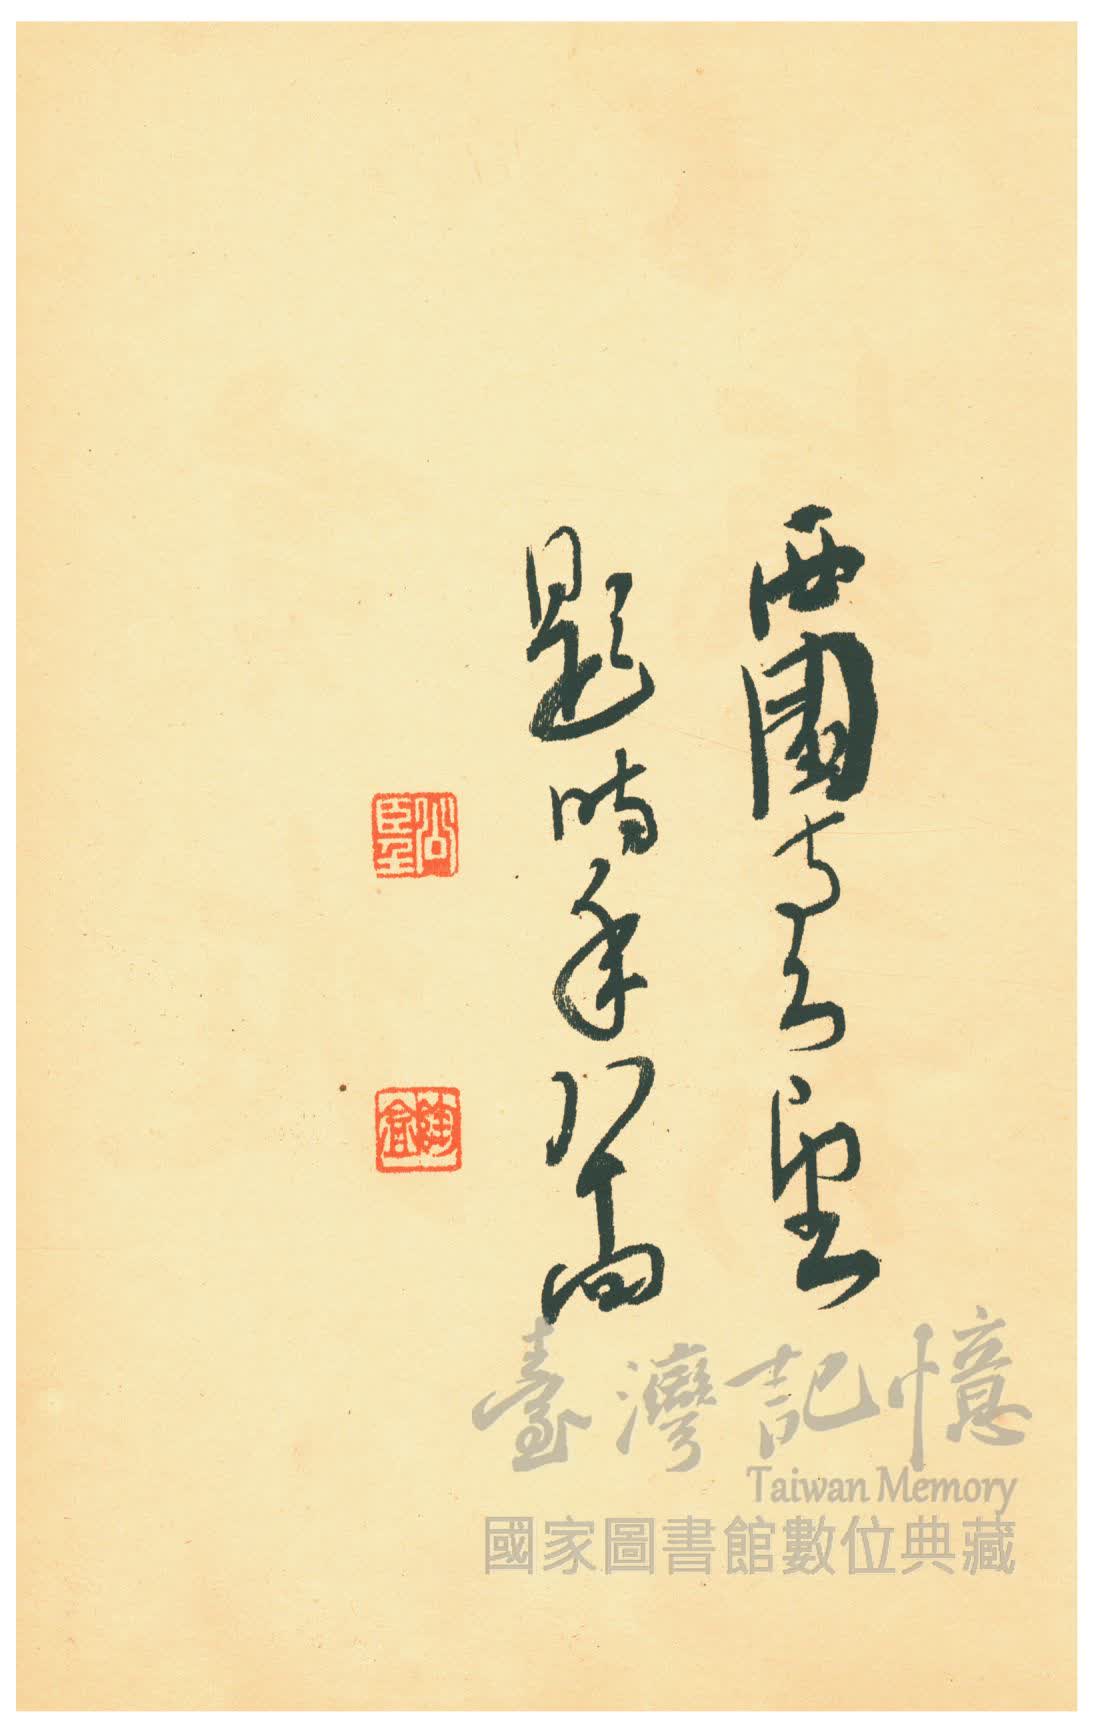 西園寺公望
題時年八十四
公望
陶盦
臺灣記憶
Taiwan Memory
國家圖書館數位典藏